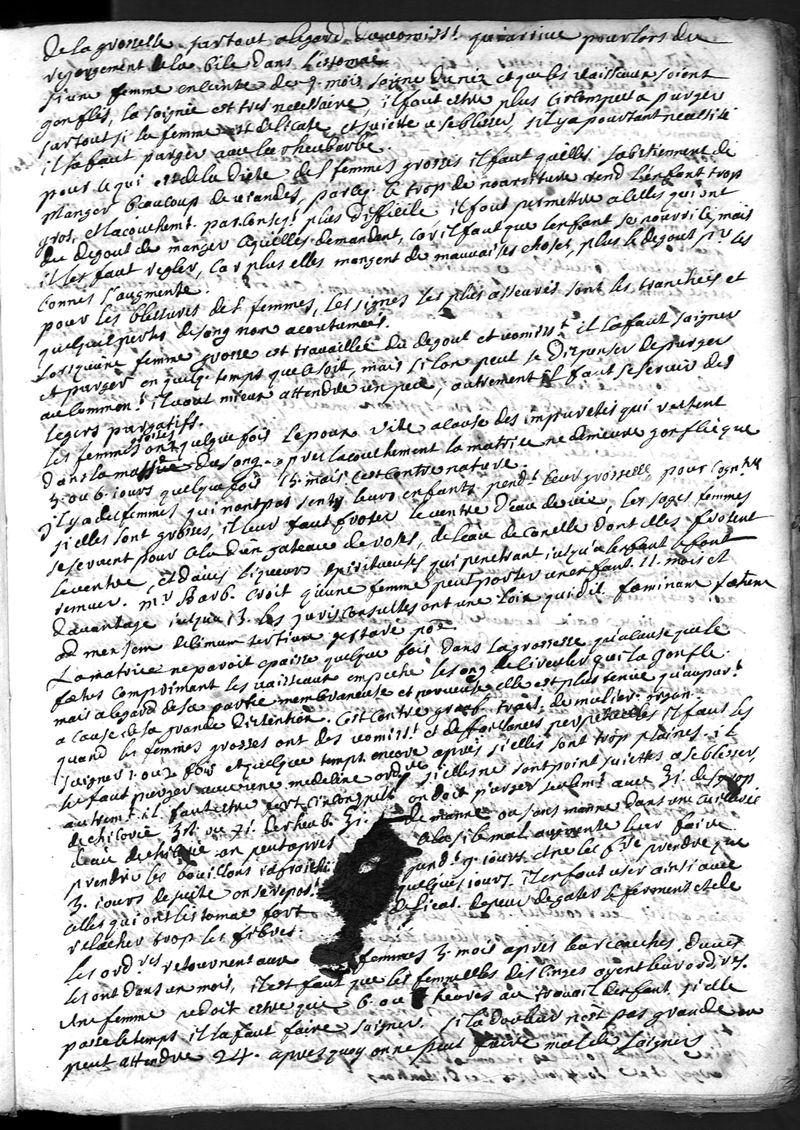 de la grosselle surtout a legard du vomiss.t qui arrive pour lors du
regorgement de la bile dans lestomac
si une femme enceinte de 9. mois saigne du nez et que les vaisseaux soient
gonflés, la saignée est tres necessaire, il faut estre plus circonspect a purger
surtout si la femme est delicate et suiette a se blesser, s'il y a pourtant necessité
il la faut purger avec la rheubarbe.
pour ce qui est de la diete des femmes grosses il faut quelles sabstiennent de
manger beaucoup de viandes, parceq. le trop de nourriture rend lenfant trop
gros, et lacouchem.t par conseq.t plus difficile il faut permettre a celles qui ont
du degout de manger ce quelles demandent, car il faut que lenfant se nourrisse mais
il les faut regler, car plus elles mangent de mauvaises choses, plus le degout p.r les
bonnes s'augmente.
pour les blessures des femmes, les signes les plus asseurés sont les tranchées et
quelque perte de sang non acoutumées.
Lorsqu'une femme grosse est travaillée du degout et vomiss.t il la faut saigner
et purger en quelq. temps que ce soit, mais si lon peut se dispenser de purger
au commen.t il vaut mieux attendre un peu, autrement il faut se servir des
legers purgatifs.
les femmes grosses ont quelque fois le poux vite a cause des impuretés qui restent
dans la masse du sang. apres lacouchement la matrice ne demeure gonflée que
5. ou 6. iours quelque fois 15. mais c'est contre nature.
il y a des femmes qui n'ont pas senty leurs enfants pend.t leur grosselle pour
si elles sont grosses, il leur faut froter le ventre d'eau de vie, les sages femmes
se servent pour cela d'un gateau de roses, de leau de canelle dont elles frotent
le ventre, et d'autres liqueurs spiritueuses qui penetrant iusqu'a lenfant le font
remuer. M.r Barb. croit qu'une femme peut porter un enfant 11. mois et
davantage iusqu'a 13. les jurisconsultes ont une loix qui dit foeminam foetum
ad mensem decimum tertium gestare posse
La matrice ne paroit epaisse quelque fois dans la grossesse qu'a cause que le
foetus comprimant les vaisseaux empeche le sang de circuler qui la gonfle
mais a legard de sa partie membraneuse et nerveuse elle est plus tenue qu'aupar.t
a cause de la grande distention. C'est contre graaf. trait. de mulier. organ.
quand les femmes grosses ont des vomiss.t et deffaillances perpetuelles il faut les
saigner 1. ou 2 fois et quelque temps encore apres si elles sont trop plaines. il
les faut purger avec une medecine ord.re si elles ne sont point suiettes a se blesser,
autrem.t il faut estre fort circonspect on doit purger avec de sirop
de chicorée de rheub. de manne ou sans manne dans une cuillerée
deau de chicorée on peut apres a la si le mal augmente leur faire
prendre les bouillons rafraichi 9 iours
3. iours de suite on se repose quelques iours. il en faut user ainsi avec
celles qui ont lestomac fort delicat. de peur de gater le ferment et de
relacher trop les fibres.
les ord.res retournent aux femmes 3. mois apres leur couches. d'autres
les ont dans un mois, il est faut que les femmelles des linges ayent leur ordres.
Une femme ne doit estre que 6. ou 7 heures au travail denfant si elle
passe le temps il la faut faire saigner. si la douleur n'est pas grande on
peut attendre 24. apres quoy on ne peut faire mal de saigner